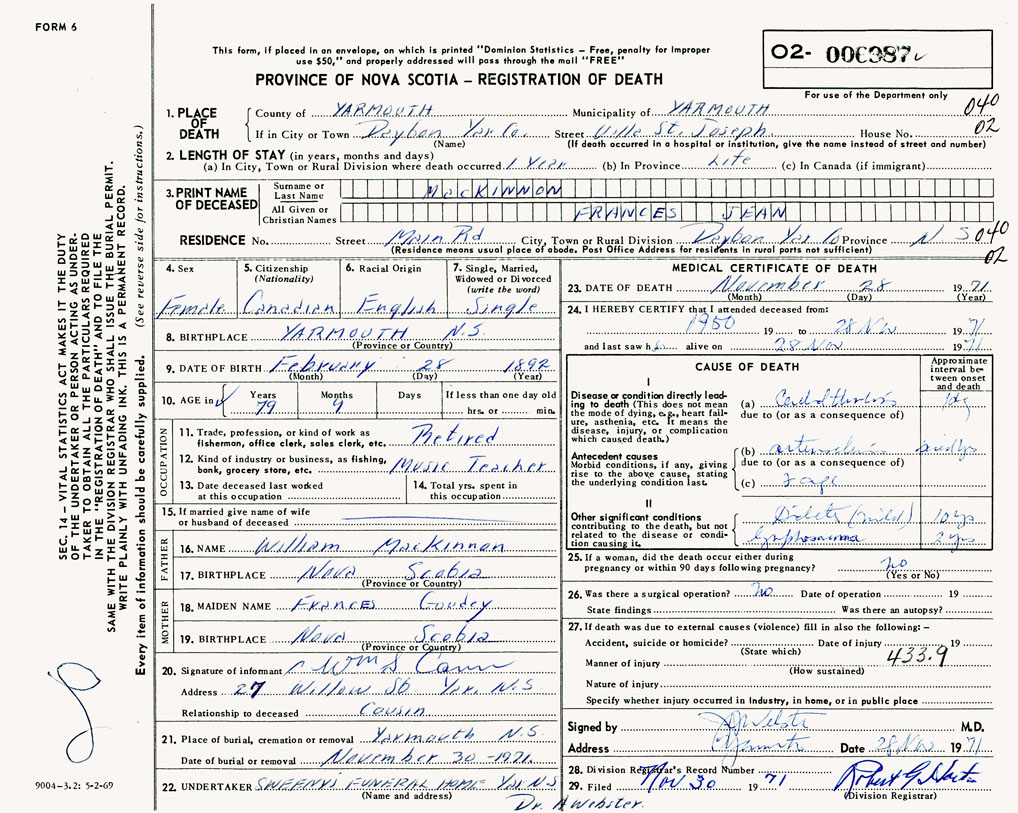 FORM 6
This form, if placed in an envelope, on which is printed "Dominion Statistics – Free, penalty for improper
use $50," and properly addressed will pass through the mail "FREE"
PROVINCE OF NOVA SCOTIA – REGISTRATION OF DEATH
O2- 006387
For use of the Department only
040
02
1. PLACE OF DEATH
County of YARMOUTH Municipality of YARMOUTH
If in City or Town Dayton Yar Co. Street Villa St. Joseph House No.
(Name) (If death occurred in a hospital or institution, give the name instead of street and number)
2. LENGTH OF STAY (in years, months and days)
(a) In City, Town or Rural Division where death occurred 1 Year (b) In Province Life (c) In Canada (if immigrant)
3. PRINT NAME OF DECEASED
Surname or Last Name MacKINNON
All Given or Christian Names FRANCES JEAN
RESIDENCE No. Street Main Rd City, Town or Rural Division Dayton Yar Co Province N S 040
(Residence means usual place of abode. Post Office Address for residents in rural parts not sufficient) 02
4. Sex Female
5. Citizenship (Nationality) Canadian
6. Racial Origin English
7. Single, Married, Widowed or Divorced (write the word) Single
8. BIRTHPLACE YARMOUTH N.S.
(Province or Country)
9. DATE OF BIRTH February 28 1892
(Month) (Day) (Year)
10. AGE in Years 79 Months 9 Days If less than one day old hrs. or min.
OCCUPATION
11. Trade, profession, or kind of work as fisherman, office clerk, sales clerk, etc. Retired
12. Kind of industry or business, as fishing, bank, grocery store, etc. Music Teacher
13. Date deceased last worked at this occupation
14. Total yrs. spent in this occupation
15. If married give name of wife or husband of deceased
FATHER
16. NAME William MacKinnon
17. BIRTHPLACE Nova Scotia
(Province or Country)
MOTHER
18. MAIDEN NAME Frances Goudey
19. BIRTHPLACE Nova Scotia
(Province or Country)
20. Signature of informant Wm S Cann
Address 27 Willow St Yar. N.S
Relationship to deceased Cousin
21. Place of burial, cremation or removal Yarmouth N.S.
Date of burial or removal November 30 - 1971.
22. UNDERTAKER SWEENY'S FUNERAL HOME Yar N.S
(Name and address)
Dr. A Webster.
MEDICAL CERTIFICATE OF DEATH
23. DATE OF DEATH November 28 1971
(Month) (Day) (Year)
24. I HEREBY CERTIFY that I attended deceased from:
1950 19 to 28 Nov 1971
and last saw h alive on 28 Nov 1971
CAUSE OF DEATH
Approximate interval between onset and death
I
Disease or condition directly leading to death (This does not mean the mode of dying, e.g., heart failure, asthenia, etc. It means the disease, injury, or complication which caused death.)
(a)
due to (or as a consequence of)
Antecedent causes
Morbid conditions, if any, giving rise to the above cause, stating the underlying condition last.
(b)
due to (or as a consequence of)
(c)
II
Other significant conditions contributing to the death, but not related to the disease or condition causing it.
(mild) 10 yrs
Lymphosarcoma 2 yrs
25. If a woman, did the death occur either during pregnancy or within 90 days following pregnancy? No
(Yes or No)
26. Was there a surgical operation? No Date of operation 19
State findings Was there an autopsy?
27. If death was due to external causes (violence) fill in also the following: –
Accident, suicide or homicide? Date of injury 19
(State which)
433.9
Manner of injury
(How sustained)
Nature of injury
Specify whether injury occurred in industry, in home, or in public place
Signed by Webster M.D.
Address Yarmouth Date 28 Nov 1971
28. Division Registrar's Record Number
29. Filed Nov 30 1971 Robert G
(Division Registrar)
SEC. 14 – VITAL STATISTICS ACT MAKES IT THE DUTY
OF THE UNDERTAKER OR PERSON ACTING AS UNDERTAKER
TO OBTAIN ALL THE PARTICULARS REQUIRED
IN THE "REGISTRATION OF DEATH" AND TO FILE THE
SAME WITH THE DIVISION REGISTRAR WHO SHALL ISSUE THE BURIAL PERMIT.
WRITE PLAINLY WITH UNFADING INK. THIS IS A PERMANENT RECORD.
Every item of information should be carefully supplied. (See reverse side for instructions.)
9004-3.2: 5-2-69